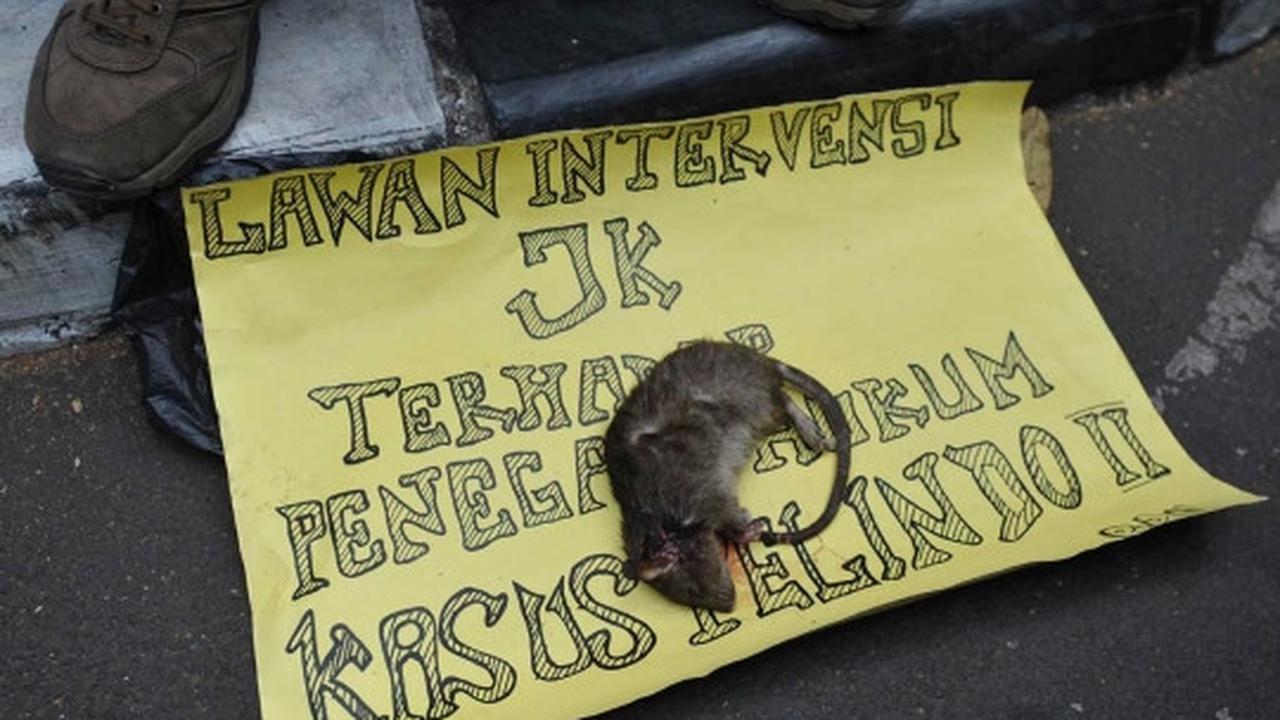 LAWAN INTERVENSI
JK
TERHADAP
PENEGA HUKUM
KASUS PELINDO II